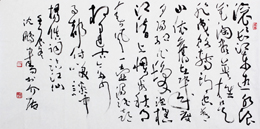 滚滚长江东逝水浪
花淘尽英雄是非
成败转头空青山
依旧在几度夕阳红
白发渔樵
江渚上惯看秋月
春风一壶浊酒喜
相逢古今多少事
都付笑谈中
杨慎词临江仙
沈鹏书于介居